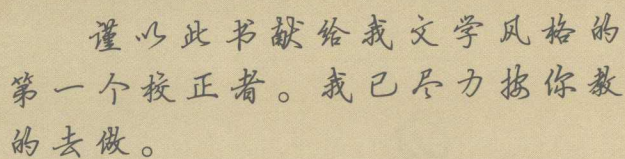 谨以此书献给我文学风格的
第一个校正者。我已尽力按你教
的去做。